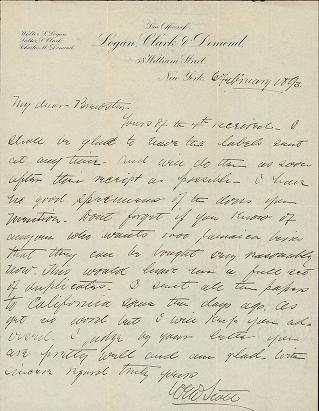 Law Offices of
Walter S. Logan
Salter S. Clark
Charles M. Demond
Logan, Clark & Demond,
58 William Street
New York 6 February 1893.
My dear Brewster,
Yours of the 4th received. I
shall be glad to have the labels sent
at any time. And will do them as soon
after their receipt as possible. I have
no good specimens of the
mention. Dont forget if you know of
anyone who wants 1000 Jamaica birds
that they can be bought very reasonably
now. This would leave me a full set
of duplicates. I sent all the papers
to California some ten days ago. As
yet no word but I will keep you ad-
vised. I judge by your letter you
are pretty well and am glad. With
sincere regard truly yours
W E D Scott